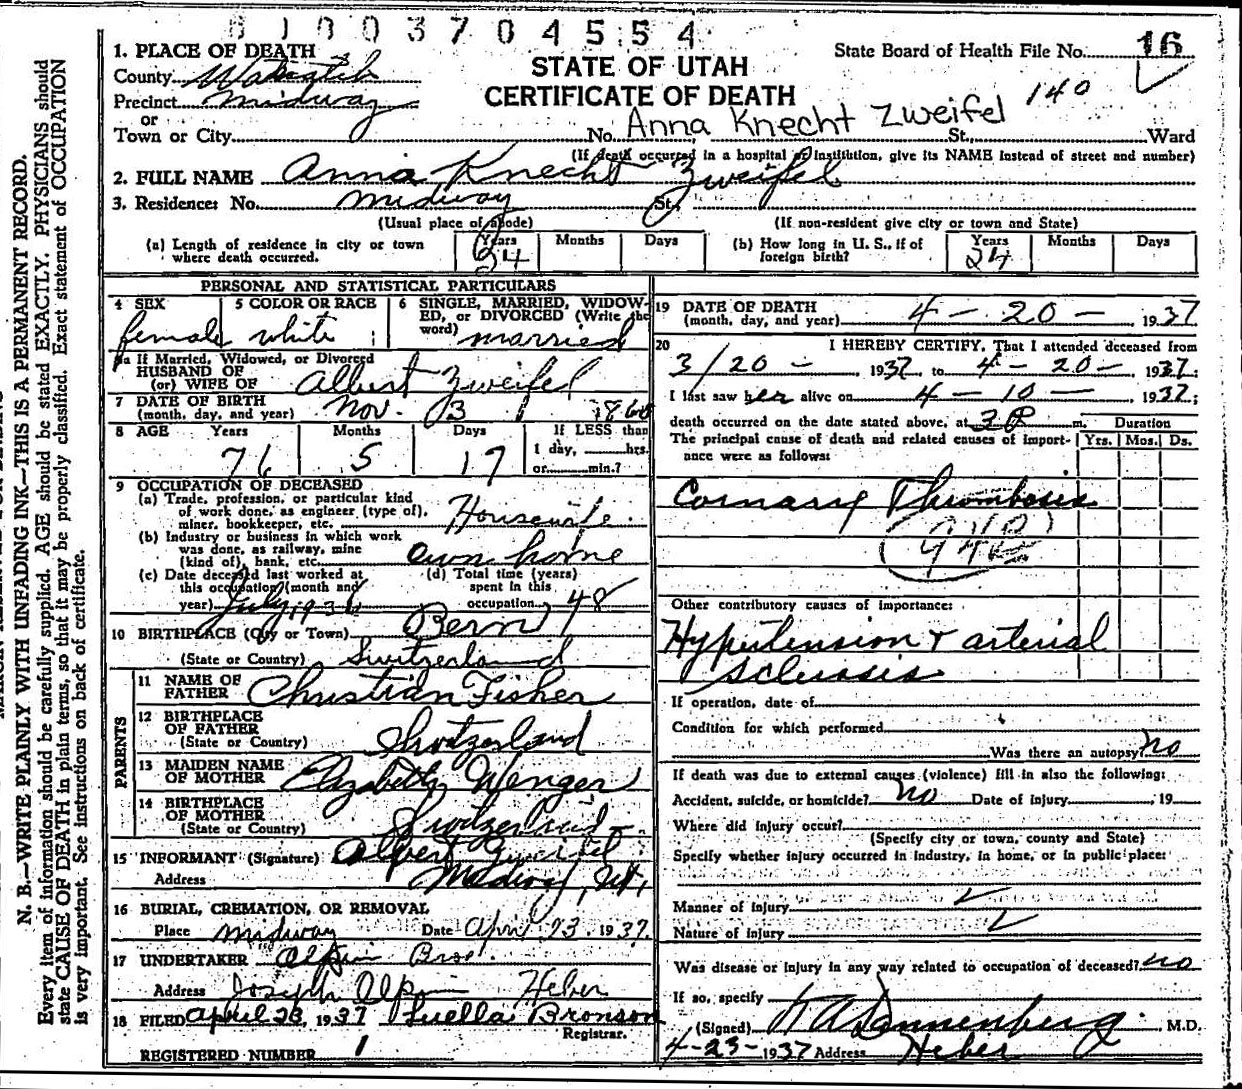 8 1 0 0 3 7 0 4 5 5 4
1. PLACE OF DEATH
County Wasatch
Precinct Midway
or
Town or City
State Board of Health File No. 16
STATE OF UTAH
CERTIFICATE OF DEATH
140
No. Anna Knecht Zweifel St., Ward
(If death occurred in a hospital or institution, give its NAME instead of street and number)
2. FULL NAME Anna Knecht Zweifel
3. Residence: No. Midway St,
(Usual place of abode) (If non-resident give city or town and State)
(a) Length of residence in city or town where death occurred. Years Months Days
(b) How long in U. S., if of foreign birth? Years Months Days
PERSONAL AND STATISTICAL PARTICULARS
4 SEX female
5 COLOR OR RACE white
6 SINGLE, MARRIED, WIDOWED, or DIVORCED (Write the word) married
5a If Married, Widowed, or Divorced
HUSBAND OF
(or) WIFE OF Albert Zweifel
7 DATE OF BIRTH
(month, day, and year) Nov. 3 1860
8 AGE Years 76 Months 5 Days 17 If LESS than 1 day, hrs. or min.?
9 OCCUPATION OF DECEASED
(a) Trade, profession, or particular kind of work done, as engineer (type of), miner, bookkeeper, etc. Housewife.
(b) Industry or business in which work was done, as railway, mine (kind of), bank, etc. own home
(c) Date deceased last worked at this occupation (month and year) July 193
(d) Total time (years) spent in this occupation 48
10 BIRTHPLACE (City or Town) Bern
(State or Country) Switzerland
PARENTS
11 NAME OF FATHER Christian Fisher
12 BIRTHPLACE OF FATHER
(State or Country) Switzerland
13 MAIDEN NAME OF MOTHER Elizabeth Wenger
14 BIRTHPLACE OF MOTHER
(State or Country) Switzerland
15 INFORMANT (Signature) Albert Zweifel
Address Midway, Ut,
16 BURIAL, CREMATION, OR REMOVAL
Place Midway Date April 23 1937.
17 UNDERTAKER Olpin Bros.
Address Joseph Olpin Heber
18 FILED April 23, 1937 Luella Bronson
Registrar.
REGISTERED NUMBER 1
19 DATE OF DEATH
(month, day, and year) 4 - 20 - 1937
20 I HEREBY CERTIFY, That I attended deceased from
3/20 - 1937, to 4 - 20 - , 1937;
I last saw her alive on 4 - 10 - 1937;
death occurred on the date stated above, at 3 P m. Duration
The principal cause of death and related causes of importance were as follows: Yrs. Mos. Ds.
Cornary Thrombosis
94B
Other contributory causes of importance:
Hypertension & arterial
sclerosis
If operation, date of
Condition for which performed
Was there an autopsy? no
If death was due to external causes (violence) fill in also the following:
Accident, suicide, or homicide? no Date of injury , 19
Where did injury occur?
(Specify city or town, county and State)
Specify whether injury occurred in industry, in home, or in public place:
Manner of injury
Nature of injury
Was disease or injury in any way related to occupation of deceased? no
If so, specify
(Signed) Dannenberg. M.D.
4-23- 1937 Address Heber
N. B.—WRITE PLAINLY WITH UNFADING INK—THIS IS A PERMANENT RECORD.
Every item of information should be carefully supplied. AGE should be stated EXACTLY. PHYSICIANS should
state CAUSE OF DEATH in plain terms, so that it may be properly classified. Exact statement of OCCUPATION
is very important. See instructions on back of certificate.